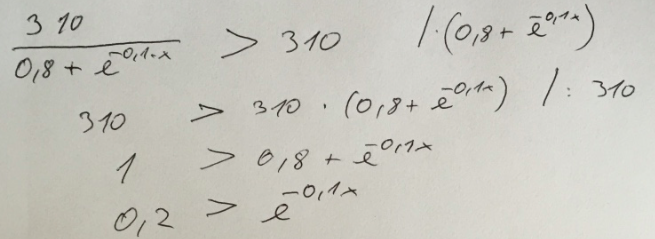 310 / (0,8 + e^(-0,1·x)) > 310 /·(0,8 + e^(-0,1x))
310 > 310 · (0,8 + e^(-0,1x)) /: 310
1 > 0,8 + e^(-0,1x)
0,2 > e^(-0,1x)